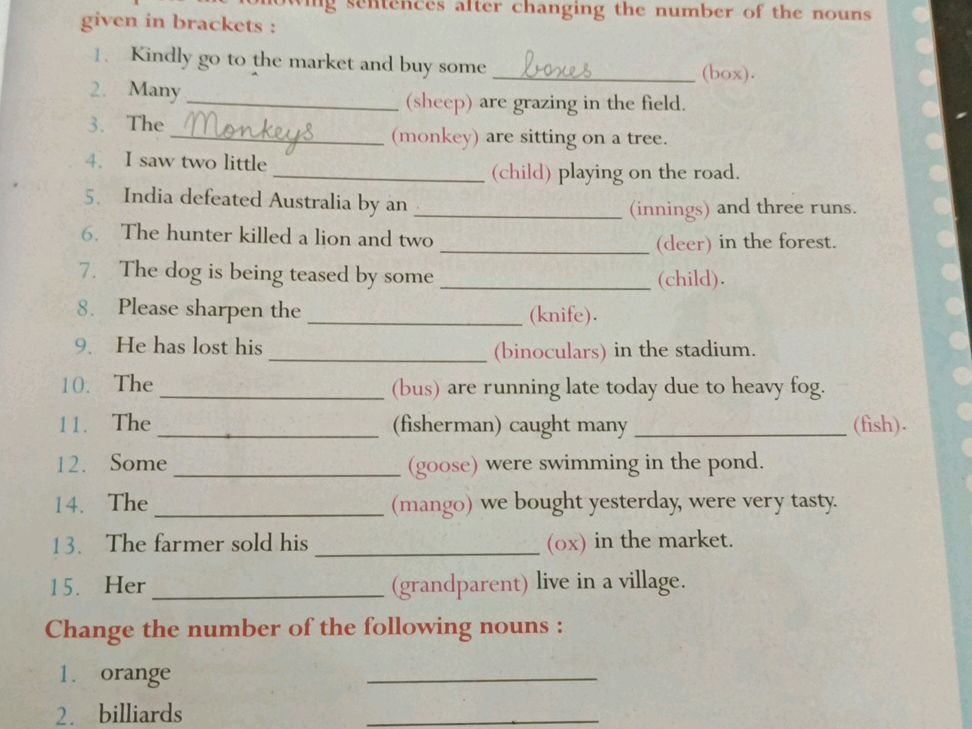 following sentences after changing the number of the nouns
given in brackets :
1. Kindly go to the market and buy some boxes (box).
2. Many ____________ (sheep) are grazing in the field.
3. The Monkeys (monkey) are sitting on a tree.
4. I saw two little ____________ (child) playing on the road.
5. India defeated Australia by an ____________ (innings) and three runs.
6. The hunter killed a lion and two ____________ (deer) in the forest.
7. The dog is being teased by some ____________ (child).
8. Please sharpen the ____________ (knife).
9. He has lost his ____________ (binoculars) in the stadium.
10. The ____________ (bus) are running late today due to heavy fog.
11. The ____________ (fisherman) caught many ____________ (fish).
12. Some ____________ (goose) were swimming in the pond.
14. The ____________ (mango) we bought yesterday, were very tasty.
13. The farmer sold his ____________ (ox) in the market.
15. Her ____________ (grandparent) live in a village.
Change the number of the following nouns :
1. orange ____________
2. billiards ____________